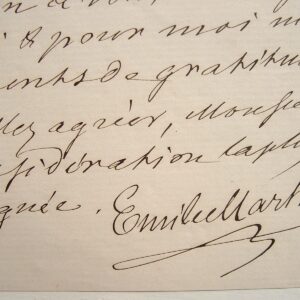 & pour moi
ents de gratitu
lez agréer, Monsie
sidération la pl
guée. Emile Mart